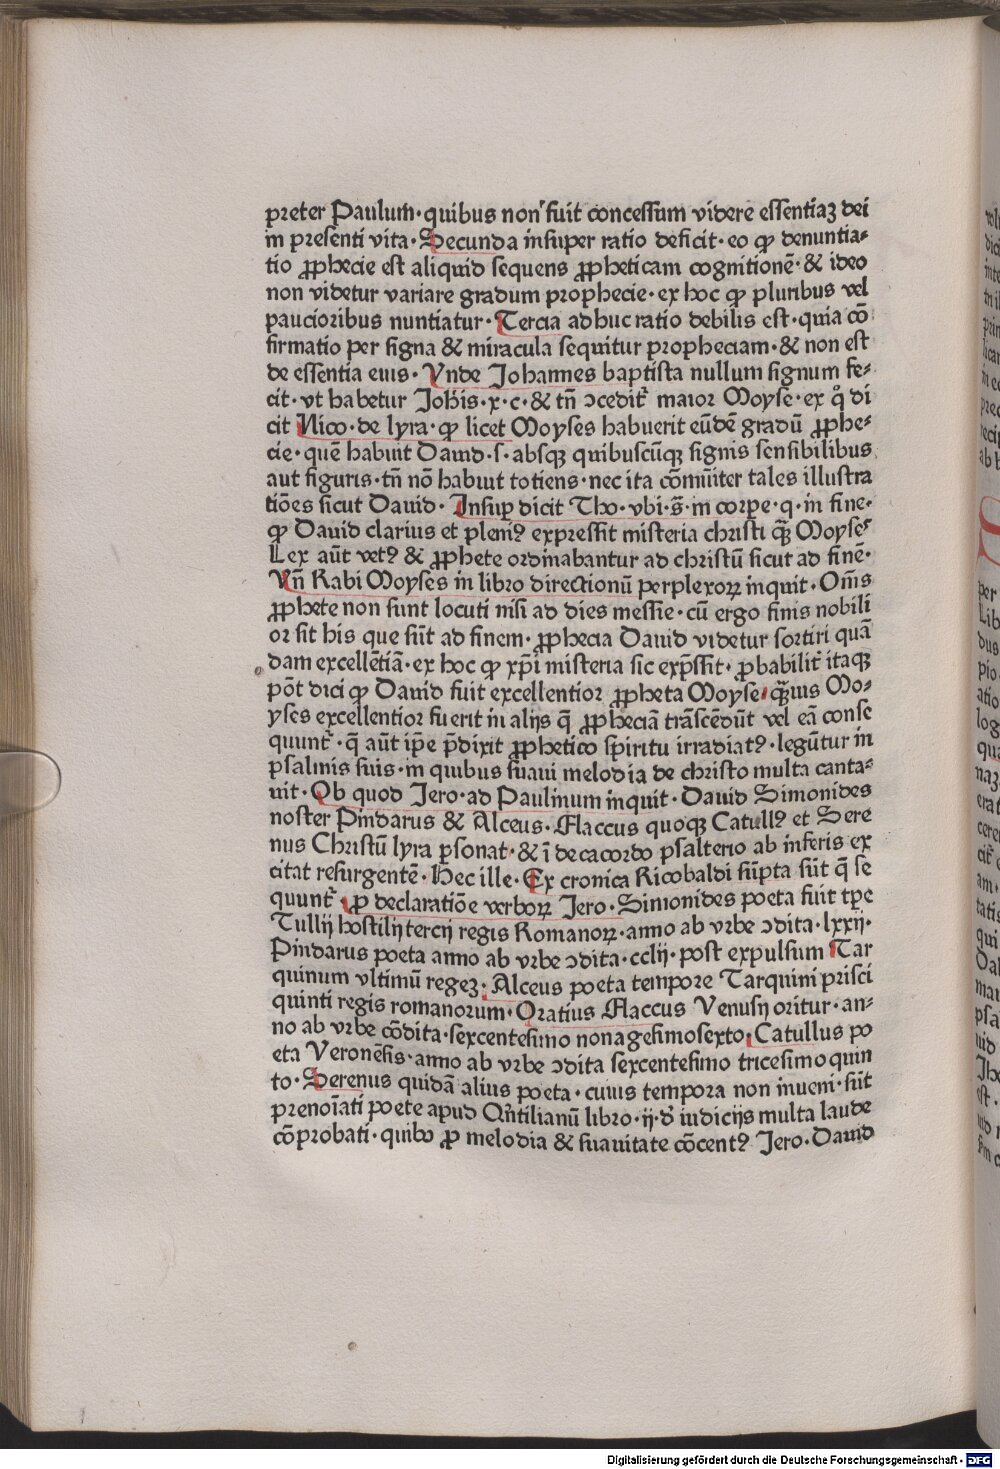 preter Paulum· quibus non fuit concessum videre essentiaʒ dei
in presenti vita· Secunda insuper ratio deficit· eo ꝙ denuntia-
tio ꝓphecie est aliquid sequens ꝓpheticam cognitionē· & ideo
non videtur variare gradum prophecie· ex hoc ꝙ pluribus vel
paucioribus nuntiatur· Tercia adhuc ratio debilis est· quia cō
firmatio per signa & miracula sequitur propheciam· & non est
de essentia eius· Vnde Johannes baptista nullum signum fe-
cit· vt habetur Joh̄is· x· c· & tn̄ ↄcedit᷑ maior Moyse· ex q̊ di
cit Nico· de lyra· ꝙ licet Moyses habuerit eūdē gradū ꝓphe-
cie· quē habuit Dauid· s· absqꝫ quibuscūqꝫ signis sensibilibus
aut figuris· tn̄ nō habuit totiens· nec ita cōmūiter tales illustra
tiōes sicut Dauid· Insuꝑ dicit Tho· vbi· s̄· in corꝑe· q· in fine·
ꝙ Dauid clarius et pleniꝰ expressit misteria christi qꝫ̄ Moyses
Lex aūt vetꝰ & ꝓphete ordinabantur ad christū sicut ad finē·
Vn̄ Rabi Moyses in libro directionū perplexoꝝ inquit· Om̄s
ꝓphete non sunt locuti nisi ad dies messie· cū ergo finis nobili
or sit his que sūt ad finem· ꝓphecia Dauid videtur sortiri quā
dam excellētiā· ex hoc ꝙ xp̄i misteria sic exp̄ssit· ꝓbabilit᷑ itaqꝫ
pōt dici ꝙ Dauid fuit excellentior ꝓpheta Moyse· qꝫ̄uis Mo-
yses excellentior fuerit in alijs q̄ ꝓpheciā trāscēdūt vel eā conse
quunt᷑· q̄ aūt ip̄e p̄dixit ꝓphetico spiritu irradiatꝰ· legūtur in
psalmis suis· in quibus suaui melodia de christo multa canta-
uit· Ob quod Jero· ad Paulinum inquit· Dauid Simonides
noster Pindarus & Alceus· Flaccus quoqꝫ Catullꝰ et Sere
nus Christū lyra ꝑsonat· & ī decacordo psalterio ab inferis ex
citat resurgentē· Hec ille· Ex cronica Ricobaldi sūpta sūt q̄ se
quunt᷑· ꝓ declaratiōe verboꝝ Jero· Simonides poeta fuit tp̄e
Tullij hostilij tercij regis Romanoꝝ· anno ab vrbe ↄdita· lxxij·
Pindarus poeta anno ab vrbe ↄdita· cclij· post expulsum Tar
quinum vltimū regeʒ· Alceus poeta tempore Tarquini prisci
quinti regis romanorum· Oratius Flaccus Venusij oritur· an-
no ab vrbe cōdita· sexcentesimo nonagesimosexto· Catullus po
eta Veronēsis· anno ab vrbe ↄdita sexcentesimo tricesimo quin
to· Serenus quidā alius poeta· cuius tempora non inueni· sūt
prenoīati poete apud Qn̄tilianū libro· ij· d̄ iudicijs multa laude
cōprobati· quibꝰ ꝓ melodia & suauitate cōcentꝰ Jero· Dauid
Digitalisierung gefördert durch die Deutsche Forschungsgemeinschaft - DFG